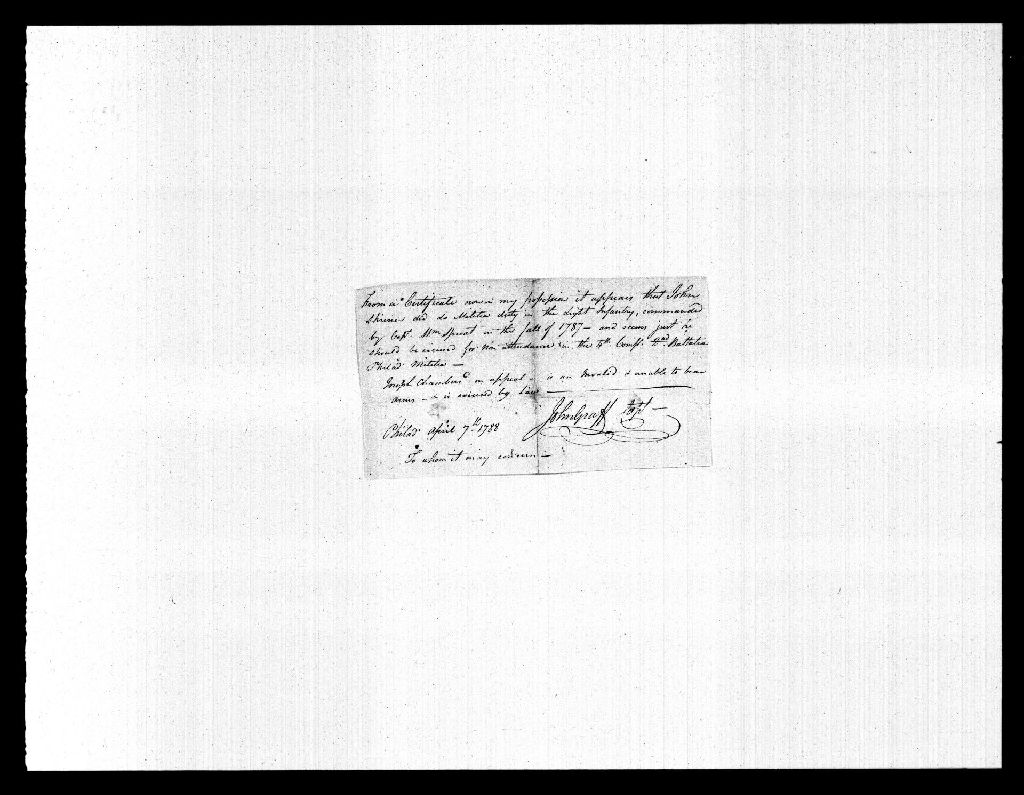 From a Certificate now in my possession it appears that John
Shriver did do Militia duty in the Light Infantry, commanded
by Capt. Wm Sproat in the fall of 1787 — and seems just he
should be excused for non attendance in the Compy 2nd Battalia
Philad. Militia —
Joseph Chambers on appeal — is an Invalid & unable to bear
arms — & is excused by Law —
John Graff Capt —
Philad. April 7th 1788
To whom it may concern —